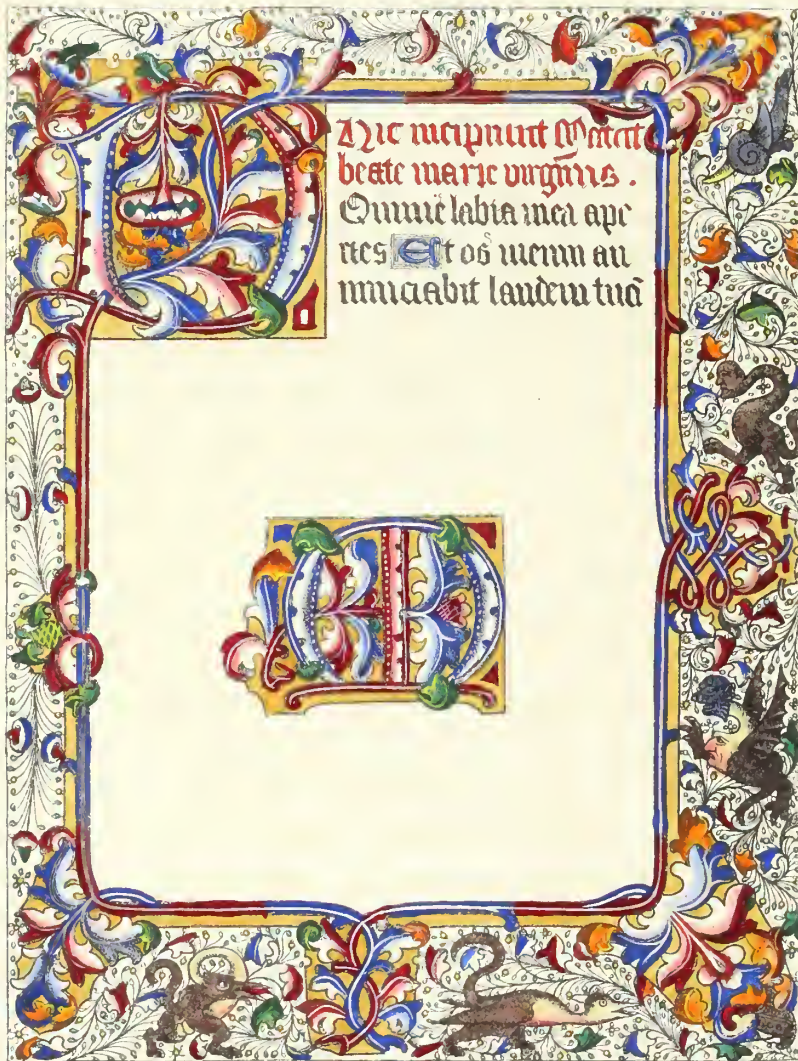 Hic incipiunt Matut
beate marie virginis.
Omine labia mea ape
ries Et os meum an
nunciabit laudem tuā